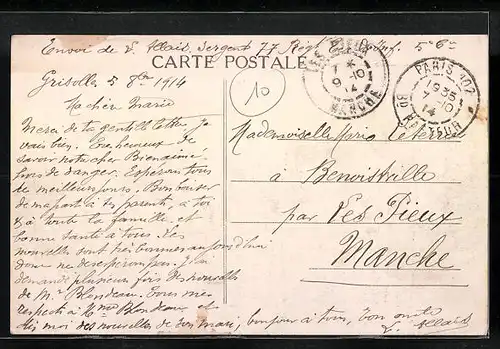 Envoi de V. Allais, Sergent 77 Régt 5e Cie
CARTE POSTALE
Grisolles 5 8bre 1914
Ma chère Marie
Merci de ta gentille lettre. Je
vais bien. Très heureux de
savoir notre cher Bienaimé
hors de danger. Espérons tous
de meilleurs jours. Bien
de ma part à tes parents, à toi
& à toute la famille, et
bonne santé à tous. Les
nouvelles sont très bonnes aujourd'hui
donc ne désespérons pas. J'ai
demandé plusieurs fois des nouvelles
de Mr Blondeau. Tous mes
respects à Mme Blondeau et
dis moi des nouvelles de son mari, bonjour à tous, ton oncle
V. Allais
10
MANCHE
9 -10
14
PARIS 102
7 -10
14
Mademoiselle
à Benoistville
par Les Pieux
Manche